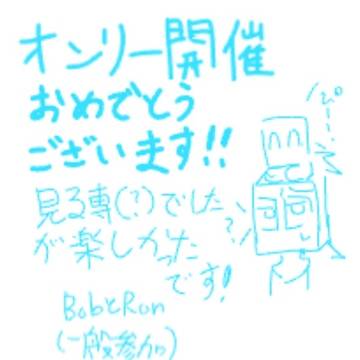 オンリー開催
おめでとう
ございます!!
見る専(?)でした
が楽しかった
です!
BobとRon
(一般参加)
ぴー…
?